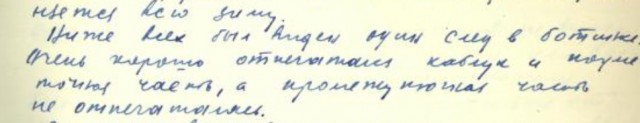 нцежся всю зиму.
Ниже всех был виден один след в ботинке.
Очень хорошо отпечатался каблук и подме
точная часть, а промежуточная часть
не отпечаталась.